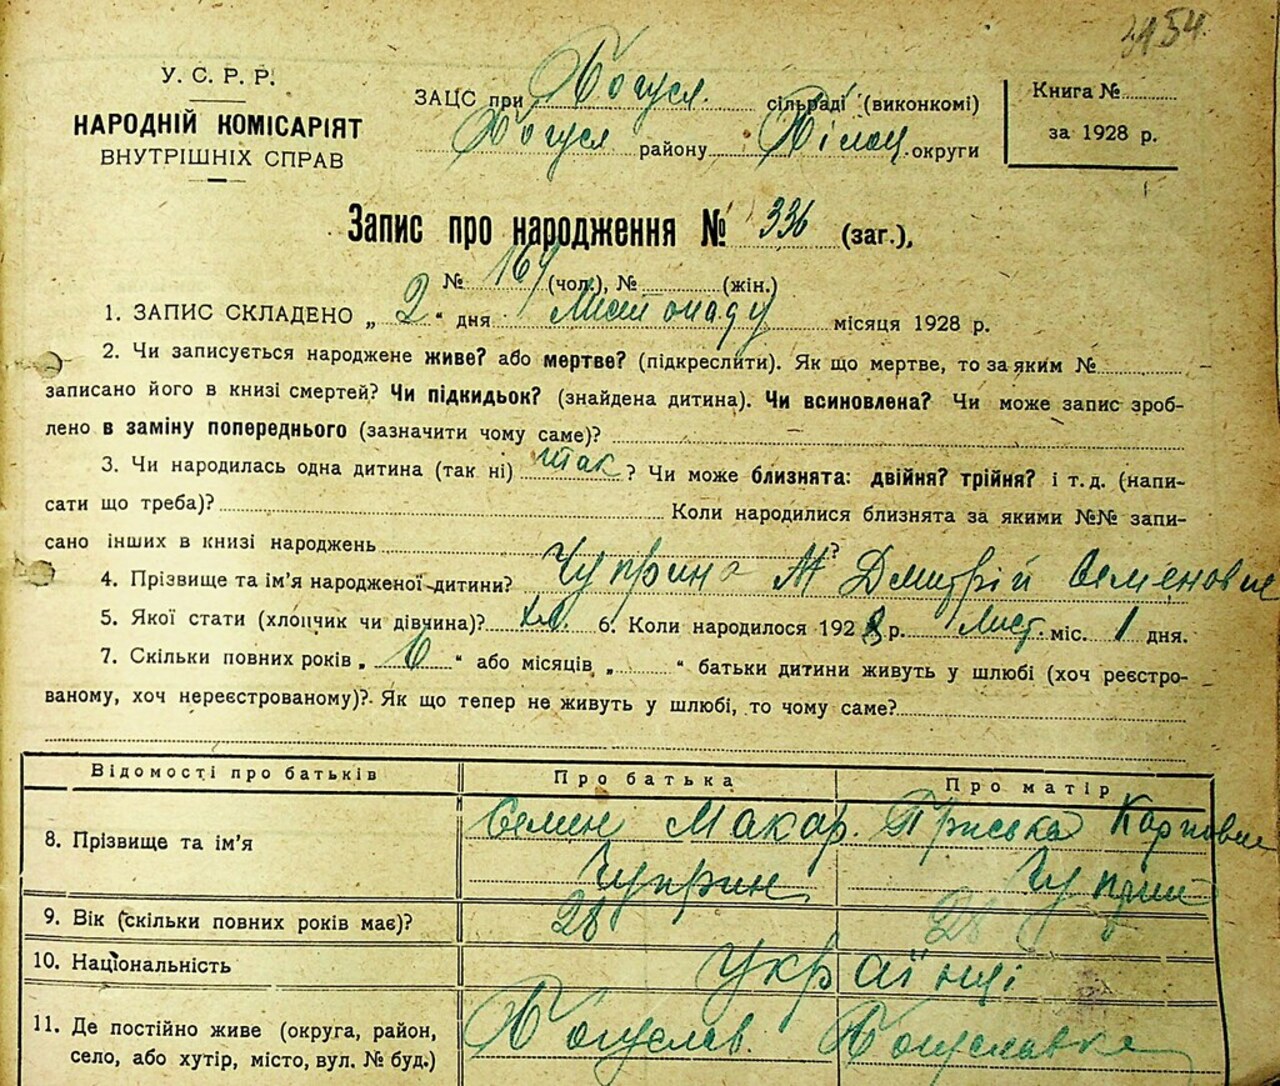 154.
У. С. Р. Р.
НАРОДНІЙ КОМІСАРІЯТ
ВНУТРІШНІХ СПРАВ
ЗАЦС при Богусл. сільраді (виконкомі)
Богусл району Білоц. округи
Книга №
за 1928 р.
Запис про народження № 336 (заг.),
№ 169 (чол.), № (жін.)
1. ЗАПИС СКЛАДЕНО „ 2 “ дня Листопаду місяця 1928 р.
2. Чи записується народжене живе? або мертве? (підкреслити). Як що мертве, то за яким №
записано його в книзі смертей? Чи підкидьок? (знайдена дитина). Чи всиновлена? Чи може запис зроб-
лено в заміну попереднього (зазначити чому саме)?
3. Чи народилась одна дитина (так ні) так ? Чи може близнята: двійня? трійня? і т. д. (напи-
сати що треба)? Коли народилися близнята за якими №№ запи-
сано інших в книзі народжень ?
4. Прізвище та ім’я народженої дитини? Чуприна Дмитрій Семенович
5. Якої стати (хлопчик чи дівчина)? хл. 6. Коли народилося 1928 р. Лист. міс. 1 дня.
7. Скільки повних років „ 6 “ або місяців „ “ батьки дитини живуть у шлюбі (хоч реєстро-
ваному, хоч нереєстрованому)? Як що тепер не живуть у шлюбі, то чому саме?
Відомості про батьків Про батька Про матір
8. Прізвище та ім’я Семен Макар. Приська Карповна
Чуприн Чуприн
9. Вік (скільки повних років має)? 28 28
10. Національність Українці
11. Де постійно живе (округа, район, Богуслав. Богуславка
село, або хутір, місто, вул. № буд.)